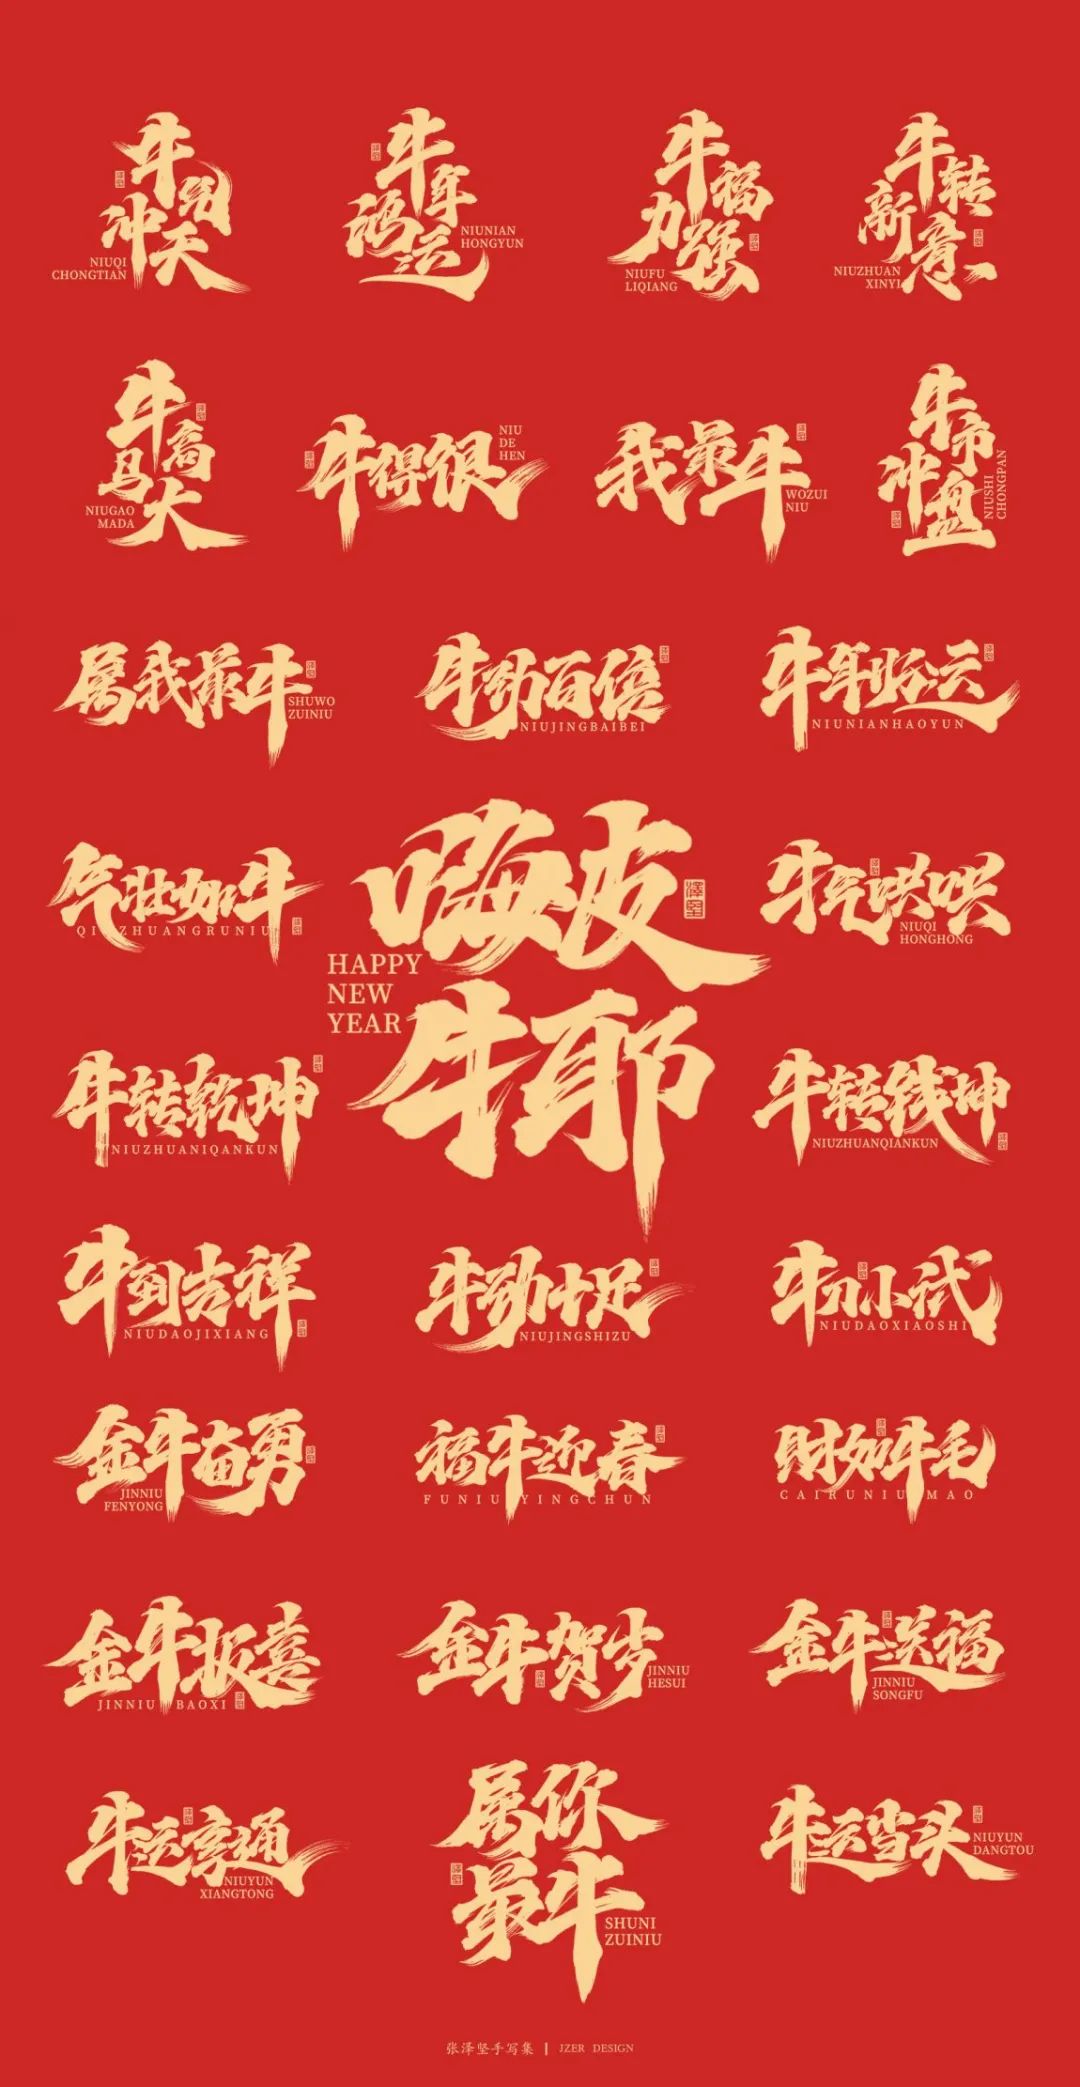 牛气冲天
NIUQI
CHONGTIAN
牛年鸿运
NIUNIAN
HONGYUN
牛福力强
NIUFU
LIQIANG
牛转新意
NIUZHUAN
XINYI
牛高马大
NIUGAO
MADA
牛得很
NIU
DE
HEN
我最牛
WOZUI
NIU
牛市冲盘
NIUSHI
CHONGPAN
属我最牛
SHUWO
ZUINIU
牛劲百倍
NIUJINGBAIBEI
牛年好运
NIUNIANHAOYUN
气壮如牛
QIZHUANGRUNIU
嗨皮
牛耶
澤堅
HAPPY
NEW
YEAR
牛气哄哄
NIUQI
HONGHONG
牛转乾坤
NIUZHUANIQANKUN
牛转钱坤
NIUZHUANQIANKUN
牛到吉祥
NIUDAOJIXIANG
牛劲十足
NIUJINGSHIZU
牛刀小试
NIUDAOXIAOSHI
金牛奋勇
JINNIU
FENYONG
福牛迎春
FUNIU YINGCHUN
财如牛毛
CAIRUNIU MAO
金牛报喜
JINNIU BAOXI
金牛贺岁
JINNIU
HESUI
金牛送福
JINNIU
SONGFU
牛运享通
NIUYUN
XIANGTONG
属你
最牛
SHUNI
ZUINIU
牛运当头
NIUYUN
DANGTOU
张泽坚手写集 | JZER DESIGN